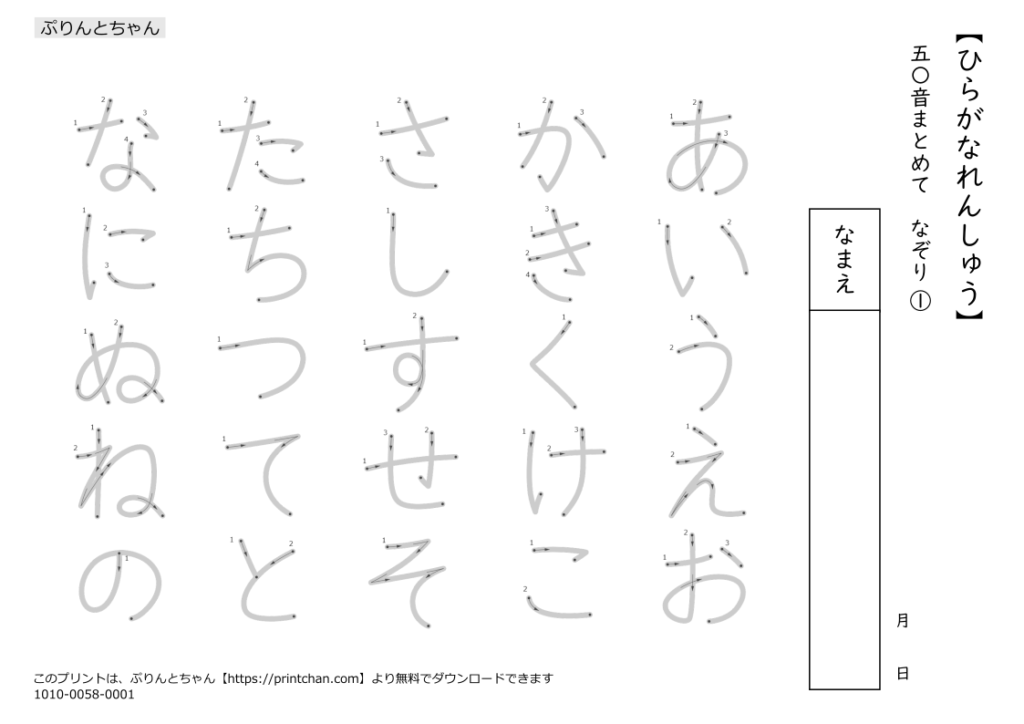 ぷりんとちゃん
【ひらがなれんしゅう】
五〇音まとめて　なぞり①
なまえ
月　日
あいうえお
かきくけこ
さしすせそ
たちつてと
なにぬねの
このプリントは、ぷりんとちゃん【https://printchan.com】より無料でダウンロードできます
1010-0058-0001